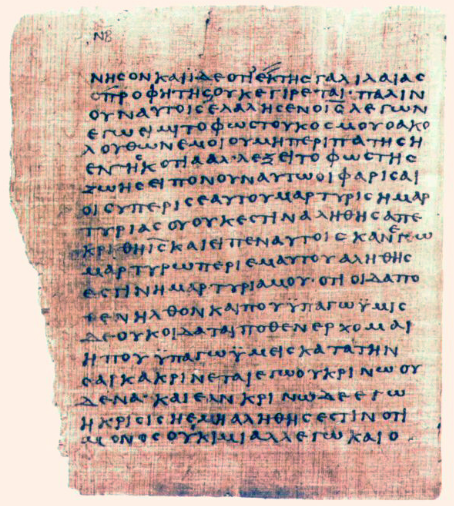 ΝΒ
ΝΗϹΟΝ ΚΑΙ ΙΔΕ ΟΤΙ ΕΚ ΤΗϹ ΓΑΛΙΛΑΙΑϹ
Ο ΠΡΟΦΗΤΗϹ ΟΥΚ ΕΓΙΡΕΤΑΙ· ΠΑΛΙΝ
ΟΥΝ ΑΥΤΟΙϹ ΕΛΑΛΗϹΕΝ Ο ΙϹ̅ ΛΕΓΩΝ
ΕΓΩ ΕΙΜΙ ΤΟ ΦΩϹ ΤΟΥ ΚΟϹΜΟΥ Ο ΑΚΟ
ΛΟΥΘΩΝ ΕΜΟΙ ΟΥ ΜΗ ΠΕΡΙΠΑΤΗϹΗ
ΕΝ ΤΗ ϹΚΟΤΙΑ ΑΛΛ ΕΞΕΙ ΤΟ ΦΩϹ ΤΗϹ
ΖΩΗϹ ΕΙΠΟΝ ΟΥΝ ΑΥΤΩ ΟΙ ΦΑΡΙϹΑΙ
ΟΙ ϹΥ ΠΕΡΙ ϹΕΑΥΤΟΥ ΜΑΡΤΥΡΙϹ Η ΜΑΡ
ΤΥΡΙΑ ϹΟΥ ΟΥΚ ΕϹΤΙΝ ΑΛΗΘΗϹ ΑΠΕ
ΚΡΙΘΗ ΙϹ̅ ΚΑΙ ΕΙΠΕΝ ΑΥΤΟΙϹ ΚΑΝ ΕΓΩ
ΜΑΡΤΥΡΩ ΠΕΡΙ ΕΜΑΥΤΟΥ ΑΛΗΘΗϹ
ΕϹΤΙΝ Η ΜΑΡΤΥΡΙΑ ΜΟΥ ΟΤΙ ΟΙΔΑ ΠΟ
ΘΕΝ ΗΛΘΟΝ ΚΑΙ ΠΟΥ ΫΠΑΓΩ ΫΜΙϹ
ΔΕ ΟΥΚ ΟΙΔΑΤΑΙ ΠΟΘΕΝ ΕΡΧΟΜΑΙ
Η ΠΟΥ ΫΠΑΓΩ ΫΜΕΙϹ ΚΑΤΑ ΤΗΝ
ϹΑΡΚΑ ΚΡΙΝΕΤΑΙ ΕΓΩ ΟΥ ΚΡΙΝΩ ΟΥ
ΔΕΝΑ· ΚΑΙ ΕΑΝ ΚΡΙΝΩ ΔΕ ΕΓΩ
Η ΚΡΙϹΙϹ Η ΕΜΗ ΑΛΗΘΗϹ ΕϹΤΙΝ ΟΤΙ
ΜΟΝΟϹ ΟΥΚ ΙΜΙ ΑΛΛ ΕΓΩ ΚΑΙ Ο